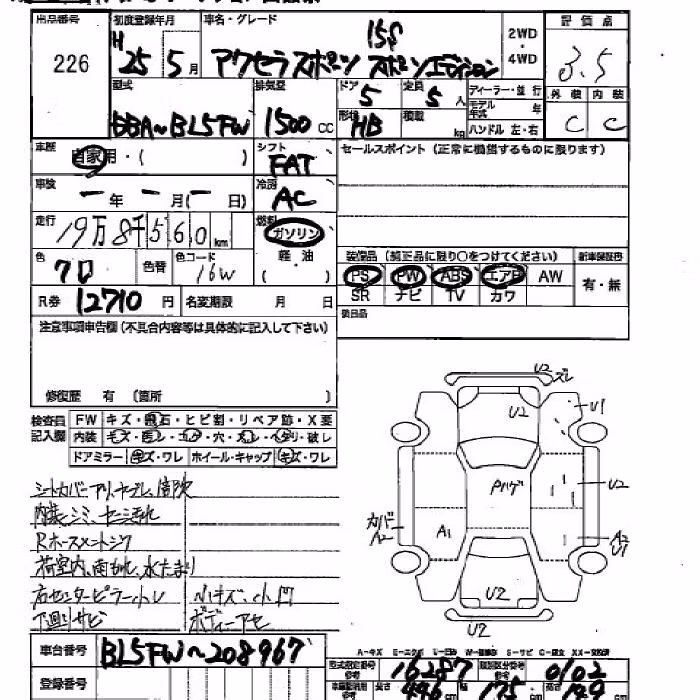 出品番号 初度登録年月 車名・グレード 評価点
226
H 25年 5月
15S
アクセラスポーツ スポーツエディション
2WD・4WD
3.5
型式 排気量 ドア 定員 ディーラー・並行 外装 内装
DBA~BL5FW 1500 CC 5 5人 モデル年式 年
形状 HB 積載 kg ハンドル 左・右 C C
車歴 自家用・( )
シフト FAT
セールスポイント(正常に機能するものに限ります)
車検 ー年 ー月(ー日)
冷房 AC
走行 19万8千560km
燃料 ガソリン
軽油
( )
色 クロ 色替 色コード 16W
装備品(純正品に限り○をつけてください) 新車保証書
PS PW ABS エアB AW 有・無
SR ナビ TV カワ
R券 12710円 名変期限 月 日
欠品
注意事項申告欄(不具合内容等は具体的に記入して下さい)
修復歴 有(箇所 )
検査員記入欄
FW キズ・飛石・ヒビ割・リペア跡・X要
内装 キズ・穴・ヘタリ・破レ
ドアミラー キズ・ワレ ホイール・キャップ キズ・ワレ
シートカバー
内装シミ
荷室内、雨もれ、水たまり
右センターピラー小U
下廻りサビ
小キズ、小凹
ボディーアセ
車台番号 BL5FW~208967
登録番号
U2 ズレ
U2
U1
Pハゲ
U2
カバー
A2
A1
A2
U1
U2
U2
A-キズ E-エクボ U-凹み W-補修 S-サビ C-腐食 XX-交換済
型式指定番号 16287 類別区分番号 0102
長さ 446 cm 幅 175 cm 高さ 149 cm